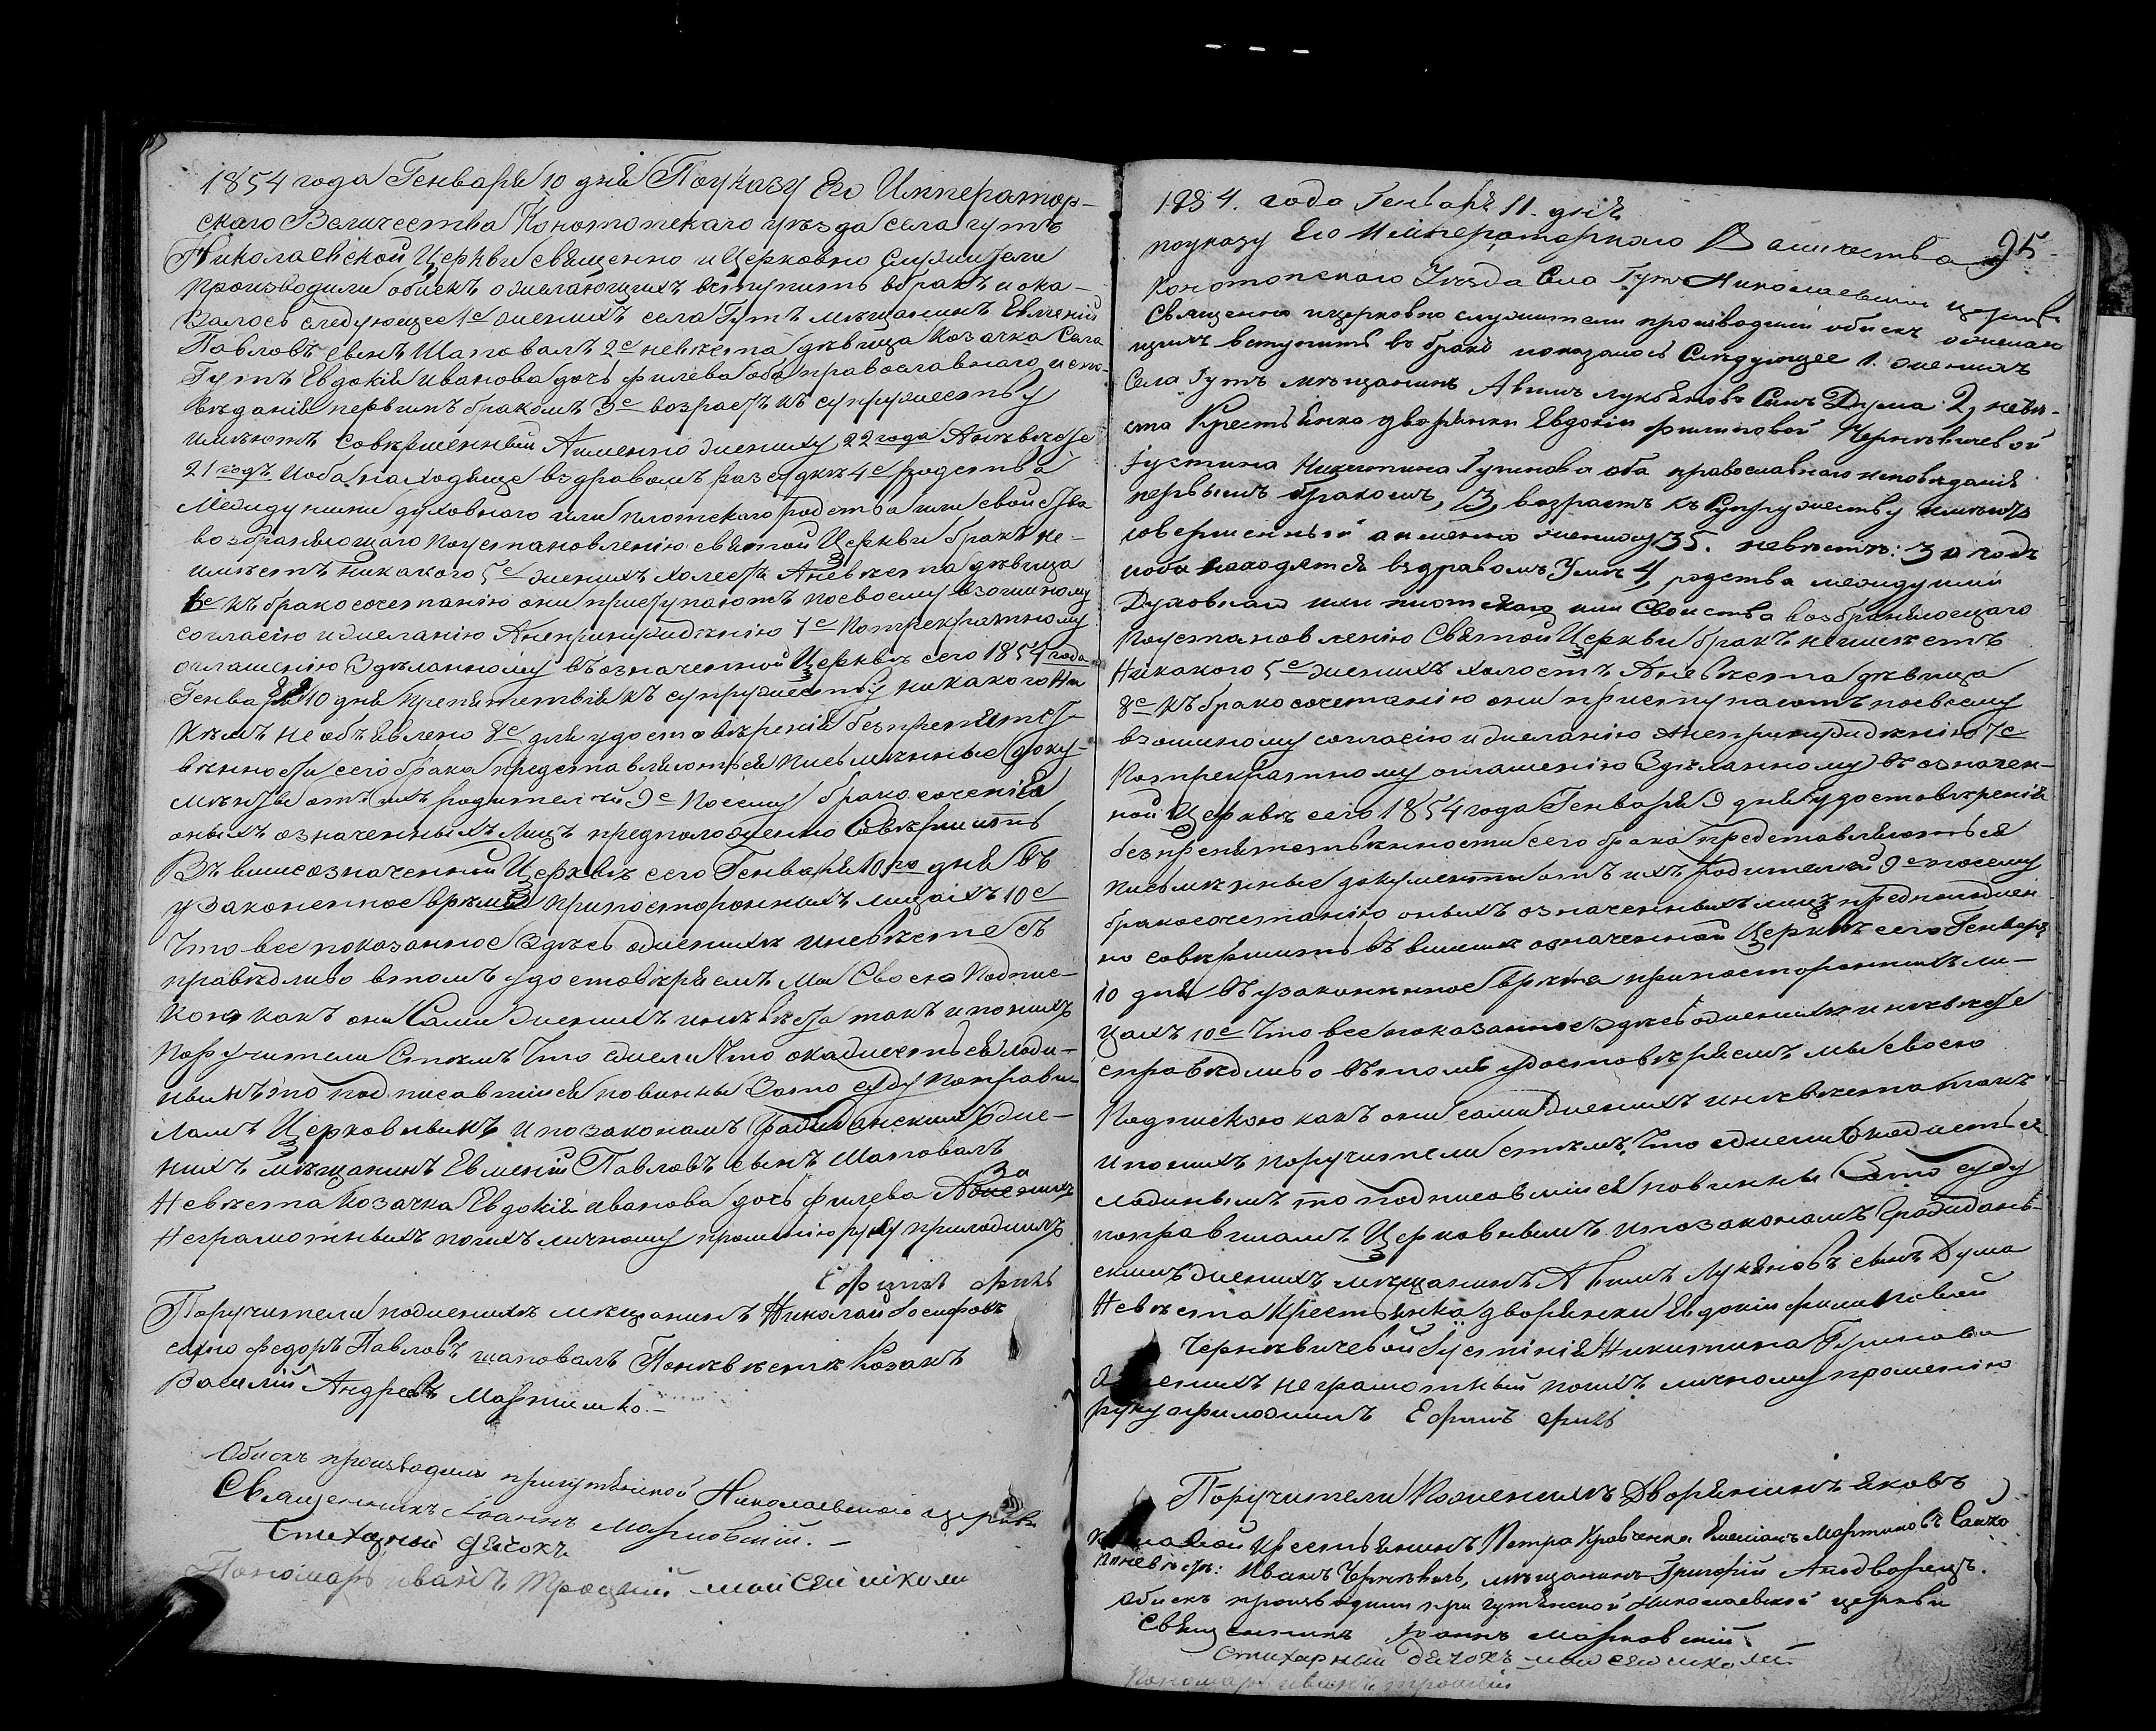 1854 года Генваря 10 дня По указу Его Император-
скаго Величества Конотопскаго уезда села Гутъ
Николаевской Церкви священно и церковно служители
производили обискъ о желающихъ вступить в бракъ и ока-
залось следующее 1е женихъ села Гутъ мѣщанинъ Евмений
Павловъ сынъ Шаповалъ 2е невѣста дѣвица козачка Села
Гутъ Евдокия Иванова дочь Филева оба православнаго испо-
вѣдания первымъ бракомъ 3е возрастъ къ супружеству
имѣютъ совѣршенный А именно жениху 22 года А невѣсте
21 годъ и оба находяще въ здравомъ разсудкѣ 4е родства
Между ними духовнаго или плотскаго родства или свойства
возбраняющаго по установлению святой Церкви бракъ не-
имѣетъ никакого 5е женихъ холостъ А невѣста дѣвица
6е къ бракосочетанию они приступаютъ по своему взаимному
согласию и желанию А не принуждѣнию 7е По трекратному
оглашению здѣланному въ означенной Церквѣ сего 1854 года
Генваря 10 дня препятствия къ супружеству никакого Ни
кѣмъ не объявлено 8е для удостовѣрения безпрепятст-
вѣнности сего брака представляются писмѣнные доку-
мѣнты отъ ихъ родителей 9е По сему бракосочения
оныхъ означенныхъ лицъ предположенно совѣршить
Въ вишеозначенной Церквѣ сего Генваря 10го дня въ
узаконенное врѣмя при посторонныхъ лицахъ 10е
Что все показанное здѣсь о женихѣ и невѣсте с-
правѣдливо в томъ удостовѣряемъ мы своею подпис-
кою какъ они сами женихъ и невѣста такъ и по нихъ
Поручители стѣмъ что ежели что окажется лож-
нымъ то подписавшийся повинны зато суду по прави-
ламъ Церковнымъ и по законамъ гражданскимъ же-
нихъ мѣщанинъ Евмений Павловъ сынъ Шаповалъ
Невѣста козачка Евдокия Иванова дочь Филева За
неграмотныхъ по ихъ личному прошению руку приложилъ
Ефимъ Филь
Поручители по женихѣ мѣщанинъ Николай Иосифовъ
Федоръ Павловъ Шаповалъ По невѣстѣ Козакъ
Василий Андреевъ Мартишко.-
Обискъ производили при гутянской Николаевской церкви
Священникъ Иоаннъ Марковский.-
Стихарный дячокъ
Пономарь Иванъ Троцкий
1854. года Генваря 11. дня
95
по указу Его Императорскаго Величества
Конотопскаго Уезда Села Гутъ Николаевской церкви
Священно и церковно служители производили обискъ о желаю
щихъ вступить въ бракъ показалось Следующее 1. женихъ
Села Гутъ мѣщанинъ Авимъ Лукяновъ Сынъ Дума 2, невѣ-
ста Крестьянка дворянки Евдокии Филиповой Чернявичевой
Густина Никитина Гупинова оба православнаго исповѣдания
первымъ бракомъ, 3, возрастъ къ Супружеству имѣютъ
совершенный а именно жениху 35. невѣстѣ: 30 годъ
и оба находятся въ здравомъ Умѣ 4, родства между ими
Духовнаго или плотскаго или Свойства возбраняющаго
По установлению Святой Церкви бракъ неимѣетъ
Никакого 5е женихъ холостъ А невѣста дѣвица
6е къ бракосочетанию они приступаютъ по своему
взаимному согласию и желанию А не принуждѣнию 7е
По трекратному оглашению здѣланному въ означен-
ной Церквѣ сего 1854 года Генваря 9 дня удостовѣрения
безпрепятствѣнности сего брака представляются
писмѣнные документы отъ ихъ родителей 9е по сему
бракосочетанию оныхъ означенныхъ лицъ предположен
но совѣршить въ вишеозначенной Церквѣ сего Генваря
10 дня въ узаконѣнное врѣмя при посторонныхъ ли-
цахъ 10е Что все показанное здѣсь о женихѣ и невѣсте
справѣдливо въ томъ удостовѣряемъ мы своею
Подпискою какъ они сами женихъ и невѣста такъ
и по нихъ поручители стѣмъ, что ежели окажется
ложнымъ то подписавшийся повинны Зато суду
по правиламъ Церковнымъ и по законамъ граждан-
скимъ женихъ мѣщанинъ Авимъ Лукяновъ сынъ Дума
Невѣста крестьянка дворянки Евдокии Филиповой
Чернявичевой Густиния Никитина Гупинова
а женихъ неграмотный по ихъ личному прошению
руку приложилъ Ефимъ Филь
Поручители По женихѣ Дворянинъ Яковъ
крестьянинъ Петра Кравченка Емельянъ Мартиновъ Сайко
По невѣстѣ: Иванъ Чернявичь, мѣщанинъ Григорий
Обискъ производили при гутянской Николаевской церкви
Священникъ Иоаннъ Марковский
Стихарный дячокъ
Пономарь Иванъ Троцкий